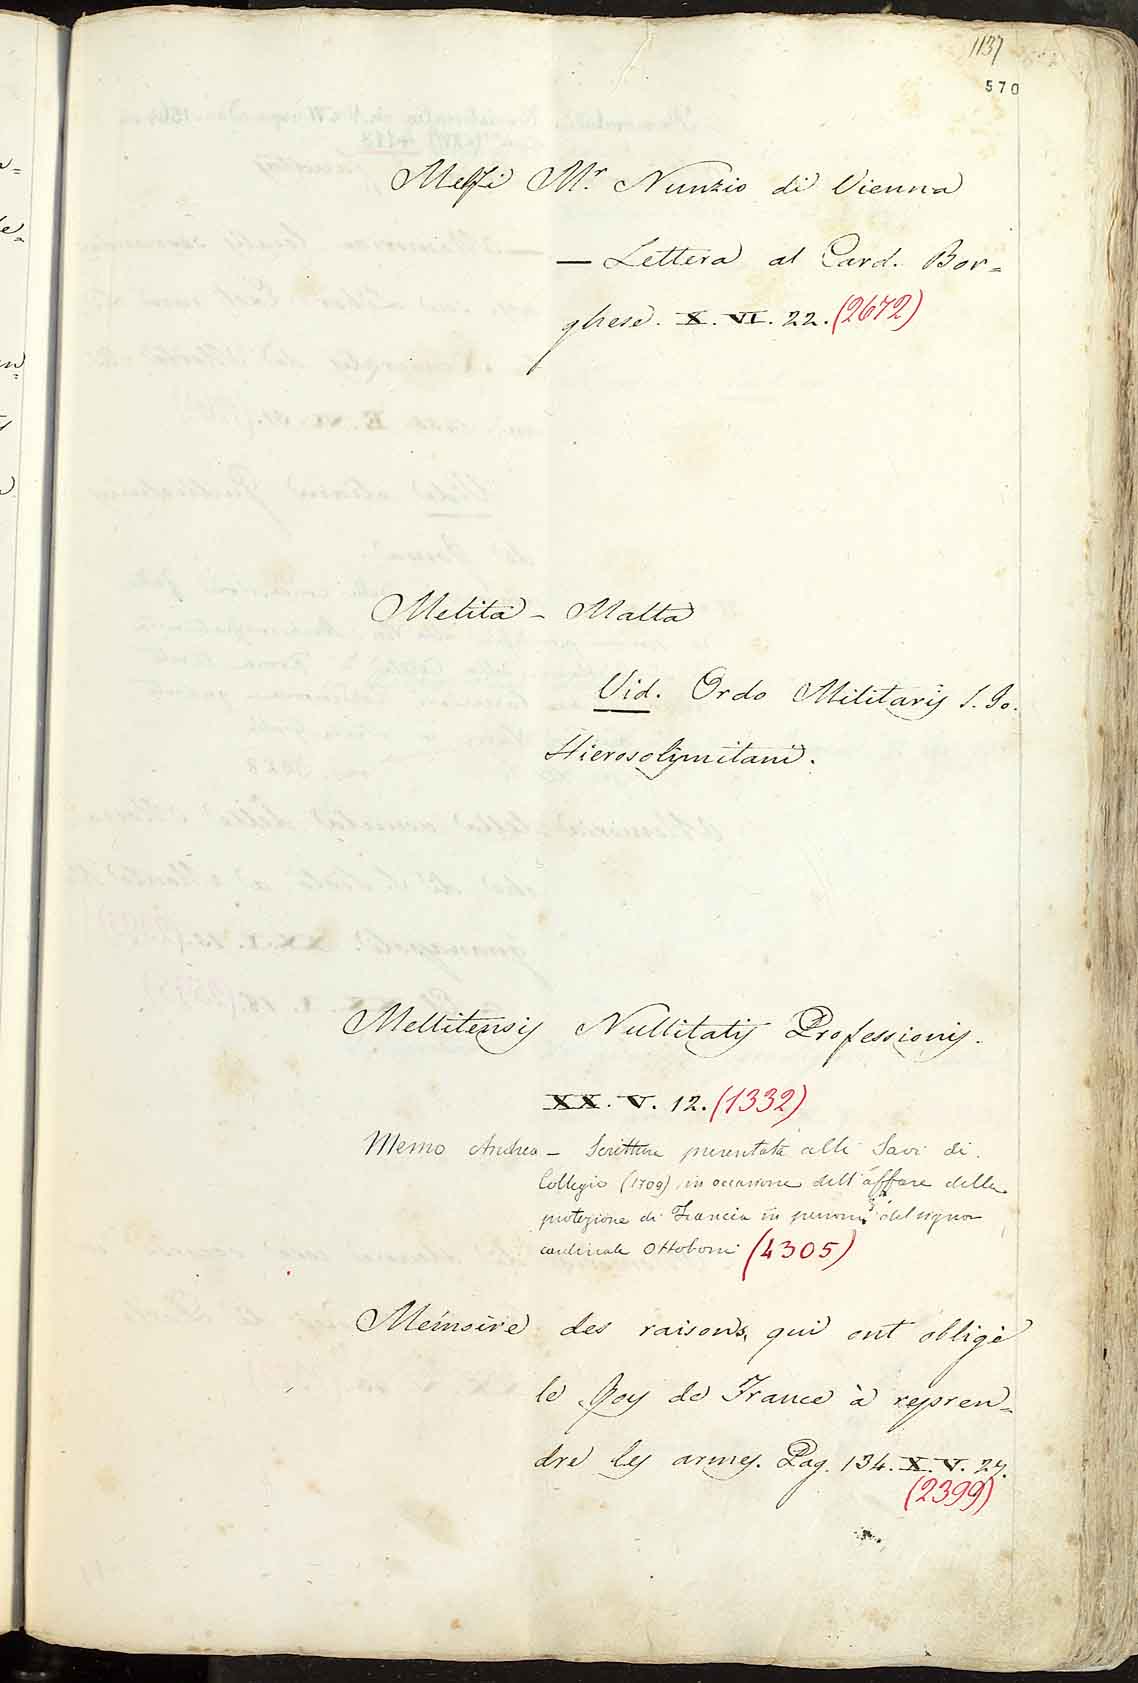 1137
570
Melfi Mr. Nunzio di Vienna
— Lettera al Card. Bor=
ghese. X. VI. 22. (2672)
Melita - Malta
Vid. Ordo Militaris S. Jo.
Hierosolymitani.
Mellitensis Nullitatis Professionis.
XX. V. 12. (1332)
Memo Andrea - Scrittura presentata alli Savi di
Collegio (1709) in occasione dell'affare della
protezione di Francia in persona del signor
cardinale Ottoboni (4305)
Mémoire des raisons, qui ont obligé
le Roy de France à repren=
dre les armes. Pag. 134. X. V. 27.
(2399)